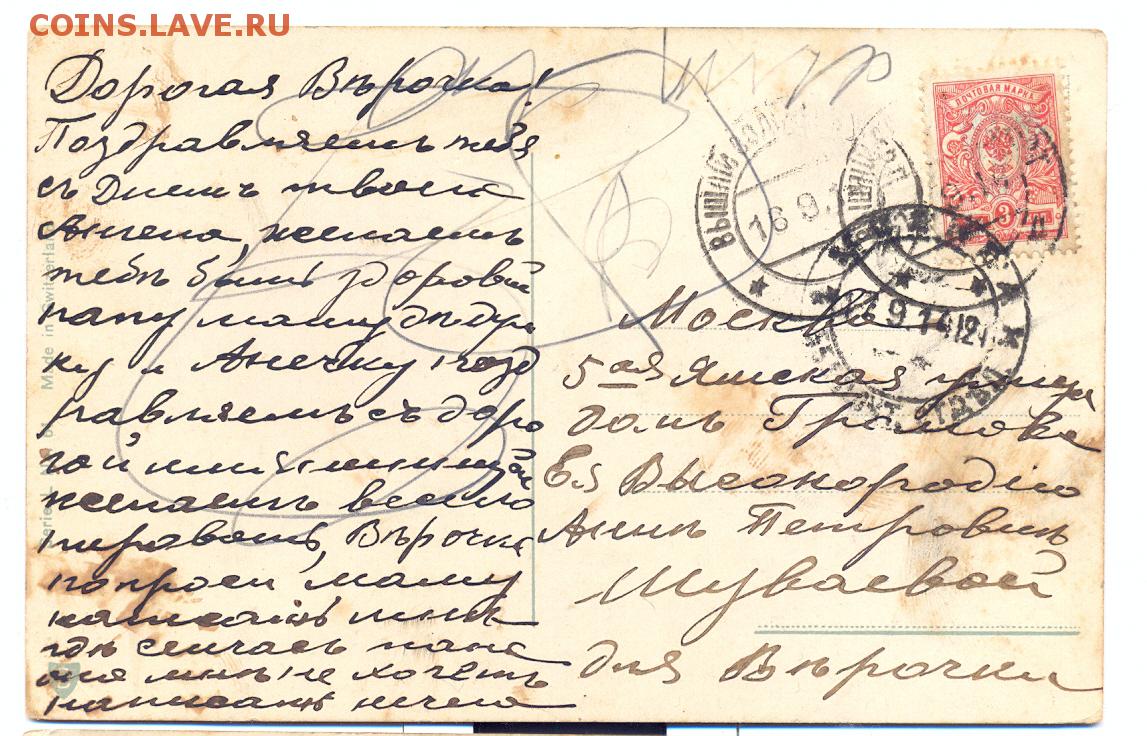 COINS.LAVE.RU
Дорогая Вѣрочка!
Поздравляемъ тебя
съ Днемъ твоего
Ангела, желаемъ
тебѣ быть здоровой
папу маму дѣдуш
ку и Анечку позд
равляемъ съ доро
гой имянинницей
желаемъ весело
пировать, Вѣрочка
попроси маму
написать мнѣ
гдѣ сейчасъ папа
она мнѣ не хочетъ
написать ничего
Москва
5ая Ямская улица
домъ Громова
Ея Высокородію
Аннѣ Петровнѣ
Шуваевой
для Вѣрочки
ПОЧТОВАЯ МАРКА
3
ВЫШНІЙ
16.9.1
9 14 12
Made in Switzerland